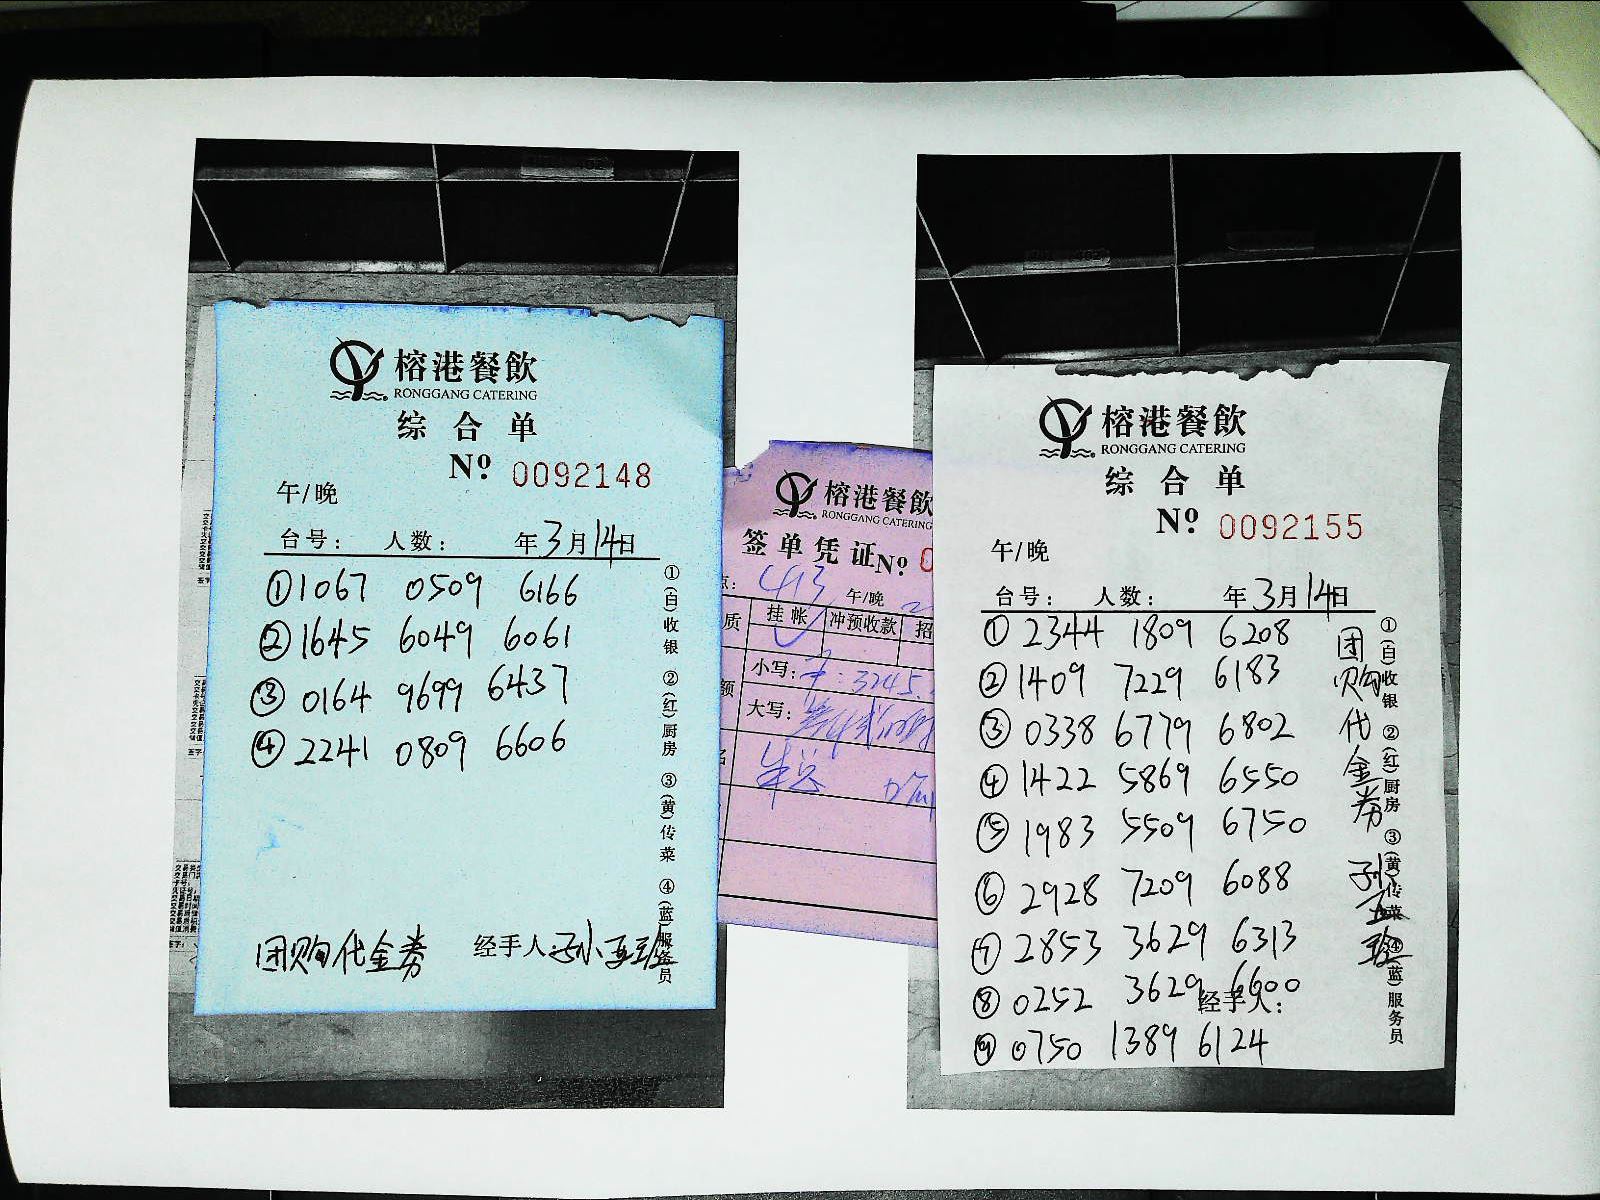 榕港餐飲
RONGGANG CATERING
综合单
Nº 0092148
午/晚
台号: 人数: 年3月14日
①1067 0509 6166
②1645 6049 6061
③0164 9699 6437
④2241 0809 6606
①(白)收银 ②(红)厨房 ③(黄)传菜 ④(蓝)服务员
团购代金券 经手人:孙亚班
榕港餐飲
RONGGANG CATERING
签单凭证Nº 0
午/晚
质 挂帐 冲预收款 招
额 小写: 3245.
大写:
榕港餐飲
RONGGANG CATERING
综合单
Nº 0092155
午/晚
台号: 人数: 年3月14日
①2344 1809 6208
②1409 7229 6183
③0338 6779 6802
④1422 5869 6550
⑤1983 5509 6750
⑥2928 7209 6088
⑦2853 3629 6313
⑧0252 3629 6600
经手人:
⑨0750 1389 6124
团购代金券 孙亚班
①(白)收银 ②(红)厨房 ③(黄)传菜 ④(蓝)服务员